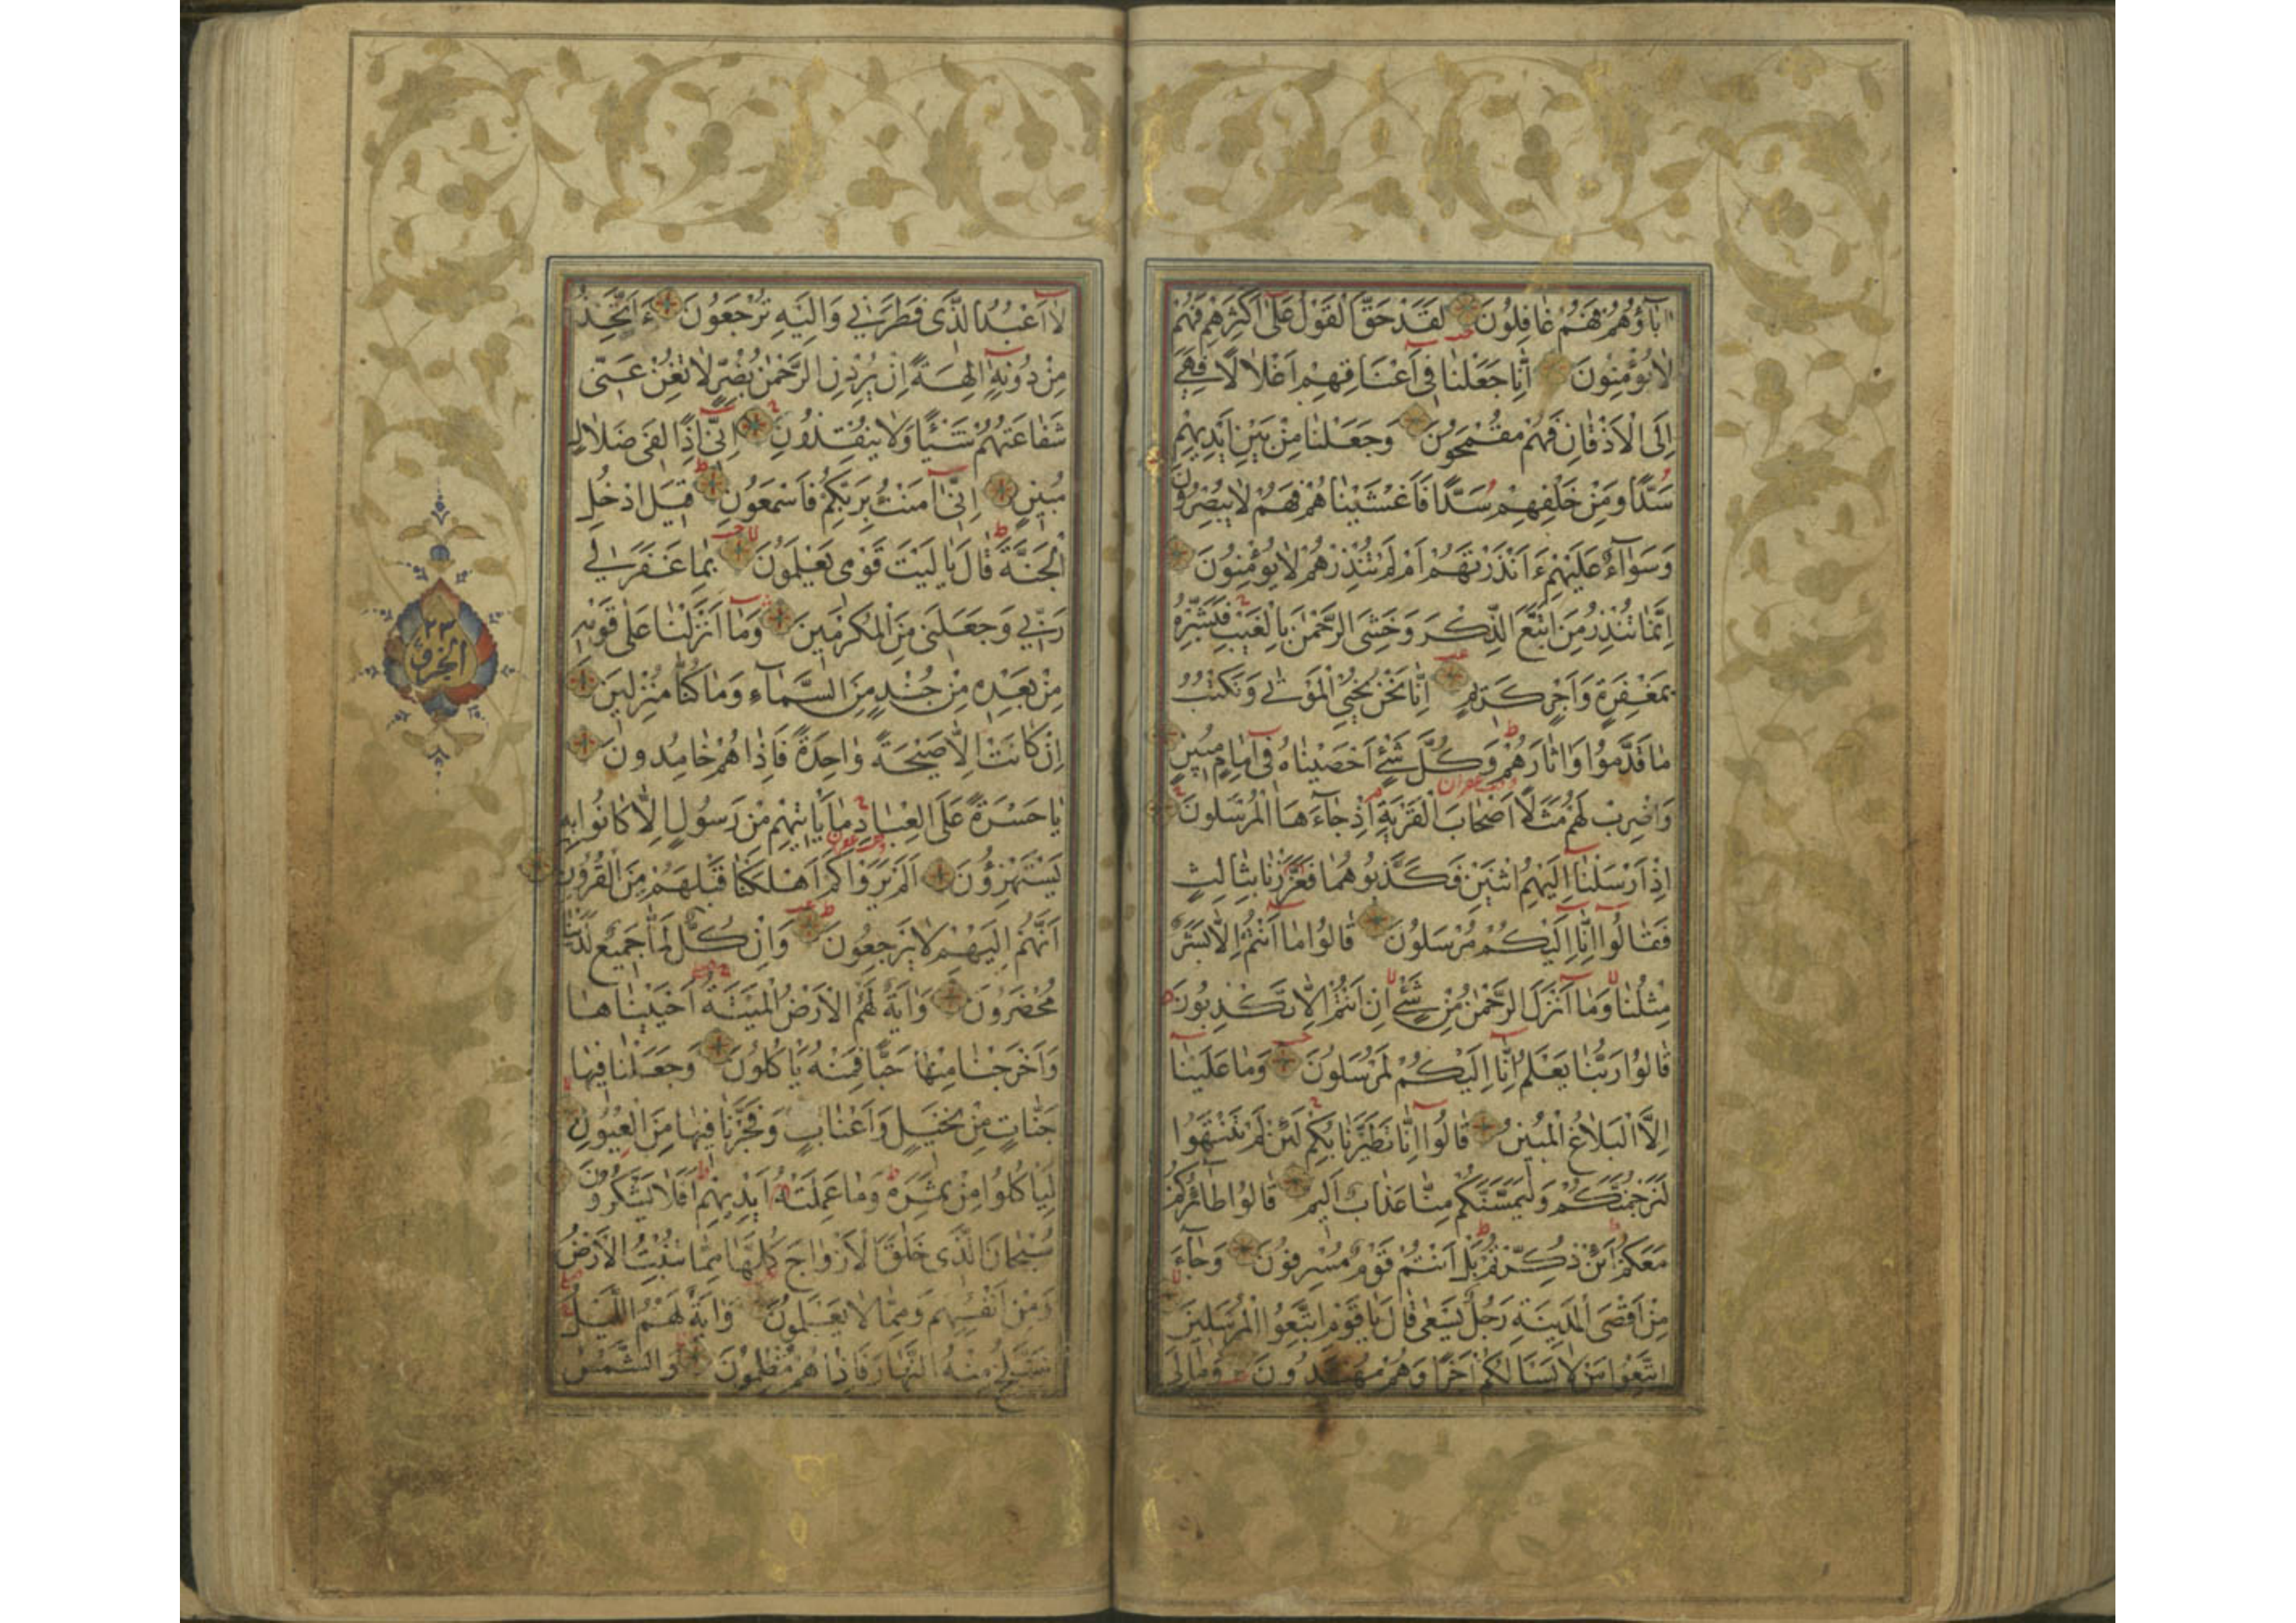 اٰبَاۤؤُهُمْ فَهُمْ غَافِلُونَ لَقَدْ حَقَّ الْقَوْلُ عَلٰى اَكْثَرِهِمْ فَهُمْ
لَا يُؤْمِنُونَ اِنَّا جَعَلْنَا فِى اَعْنَاقِهِمْ اَغْلَالًا فَهِىَ
اِلَى الْاَذْقَانِ فَهُمْ مُقْمَحُونَ وَجَعَلْنَا مِنْ بَيْنِ اَيْدِيهِمْ
سَدًّا وَمِنْ خَلْفِهِمْ سَدًّا فَاَغْشَيْنَاهُمْ فَهُمْ لَا يُبْصِرُونَ
وَسَوَاۤءٌ عَلَيْهِمْ ءَاَنْذَرْتَهُمْ اَمْ لَمْ تُنْذِرْهُمْ لَا يُؤْمِنُونَ
اِنَّمَا تُنْذِرُ مَنِ اتَّبَعَ الذِّكْرَ وَخَشِىَ الرَّحْمٰنَ بِالْغَيْبِ فَبَشِّرْهُ
بِمَغْفِرَةٍ وَاَجْرٍ كَرِيمٍ اِنَّا نَحْنُ نُحْيِى الْمَوْتٰى وَنَكْتُبُ
مَا قَدَّمُوا وَاٰثَارَهُمْ وَكُلَّ شَىْءٍ اَحْصَيْنَاهُ فِى اِمَامٍ مُبِينٍ
وَاضْرِبْ لَهُمْ مَثَلًا اَصْحَابَ الْقَرْيَةِ اِذْ جَاۤءَهَا الْمُرْسَلُونَ
اِذْ اَرْسَلْنَا اِلَيْهِمُ اثْنَيْنِ فَكَذَّبُوهُمَا فَعَزَّزْنَا بِثَالِثٍ
فَقَالُوا اِنَّا اِلَيْكُمْ مُرْسَلُونَ قَالُوا مَا اَنْتُمْ اِلَّا بَشَرٌ
مِثْلُنَا وَمَا اَنْزَلَ الرَّحْمٰنُ مِنْ شَىْءٍ اِنْ اَنْتُمْ اِلَّا تَكْذِبُونَ
قَالُوا رَبُّنَا يَعْلَمُ اِنَّا اِلَيْكُمْ لَمُرْسَلُونَ وَمَا عَلَيْنَا
اِلَّا الْبَلَاغُ الْمُبِينُ قَالُوا اِنَّا تَطَيَّرْنَا بِكُمْ لَئِنْ لَمْ تَنْتَهُوا
لَنَرْجُمَنَّكُمْ وَلَيَمَسَّنَّكُمْ مِنَّا عَذَابٌ اَلِيمٌ قَالُوا طَاۤئِرُكُمْ
مَعَكُمْ اَئِنْ ذُكِّرْتُمْ بَلْ اَنْتُمْ قَوْمٌ مُسْرِفُونَ وَجَاۤءَ
مِنْ اَقْصَى الْمَدِينَةِ رَجُلٌ يَسْعٰى قَالَ يَا قَوْمِ اتَّبِعُوا الْمُرْسَلِينَ
اتَّبِعُوا مَنْ لَا يَسْاَلُكُمْ اَجْرًا وَهُمْ مُهْتَدُونَ وَمَا لِىَ
لَا اَعْبُدُ الَّذِى فَطَرَنِى وَاِلَيْهِ تُرْجَعُونَ ءَاَتَّخِذُ
مِنْ دُونِهِ اٰلِهَةً اِنْ يُرِدْنِ الرَّحْمٰنُ بِضُرٍّ لَا تُغْنِ عَنِّى
شَفَاعَتُهُمْ شَيْئًا وَلَا يُنْقِذُونِ اِنِّى اِذًا لَفِى ضَلَالٍ
مُبِينٍ اِنِّى اٰمَنْتُ بِرَبِّكُمْ فَاسْمَعُونِ قِيلَ ادْخُلِ
الْجَنَّةَ قَالَ يَا لَيْتَ قَوْمِى يَعْلَمُونَ بِمَا غَفَرَ لِى
رَبِّى وَجَعَلَنِى مِنَ الْمُكْرَمِينَ وَمَا اَنْزَلْنَا عَلٰى قَوْمِهِ
مِنْ بَعْدِهِ مِنْ جُنْدٍ مِنَ السَّمَاۤءِ وَمَا كُنَّا مُنْزِلِينَ
اِنْ كَانَتْ اِلَّا صَيْحَةً وَاحِدَةً فَاِذَا هُمْ خَامِدُونَ
يَا حَسْرَةً عَلَى الْعِبَادِ مَا يَاْتِيهِمْ مِنْ رَسُولٍ اِلَّا كَانُوا بِهِ
يَسْتَهْزِؤُنَ اَلَمْ يَرَوْا كَمْ اَهْلَكْنَا قَبْلَهُمْ مِنَ الْقُرُونِ
اَنَّهُمْ اِلَيْهِمْ لَا يَرْجِعُونَ وَاِنْ كُلٌّ لَمَّا جَمِيعٌ لَدَيْنَا
مُحْضَرُونَ وَاٰيَةٌ لَهُمُ الْاَرْضُ الْمَيْتَةُ اَحْيَيْنَاهَا
وَاَخْرَجْنَا مِنْهَا حَبًّا فَمِنْهُ يَاْكُلُونَ وَجَعَلْنَا فِيهَا
جَنَّاتٍ مِنْ نَخِيلٍ وَاَعْنَابٍ وَفَجَّرْنَا فِيهَا مِنَ الْعُيُونِ
لِيَاْكُلُوا مِنْ ثَمَرِهِ وَمَا عَمِلَتْهُ اَيْدِيهِمْ اَفَلَا يَشْكُرُونَ
سُبْحَانَ الَّذِى خَلَقَ الْاَزْوَاجَ كُلَّهَا مِمَّا تُنْبِتُ الْاَرْضُ
وَمِنْ اَنْفُسِهِمْ وَمِمَّا لَا يَعْلَمُونَ وَاٰيَةٌ لَهُمُ اللَّيْلُ
نَسْلَخُ مِنْهُ النَّهَارَ فَاِذَا هُمْ مُظْلِمُونَ وَالشَّمْسُ